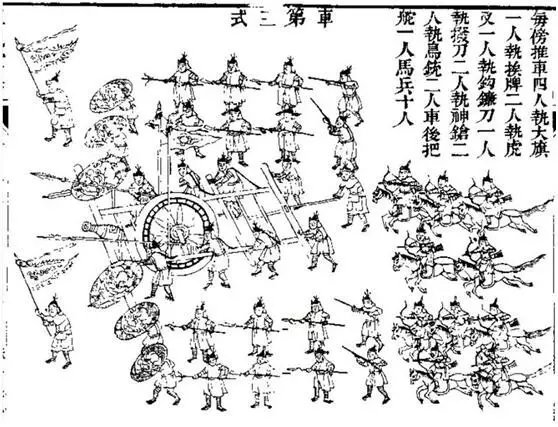 每傍推車四人執大旗
一人執挨牌二人執虎
叉一人執鈎鐮刀一人
執撥刀二人執神鎗二
人執鳥銃二人車後把
舵一人馬兵十人
車第三式